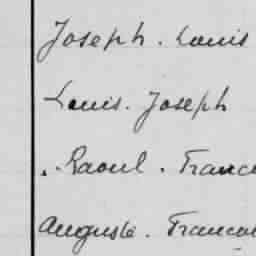 Joseph. Louis
Louis. Joseph
. Raoul. Franc
Auguste. Francoi